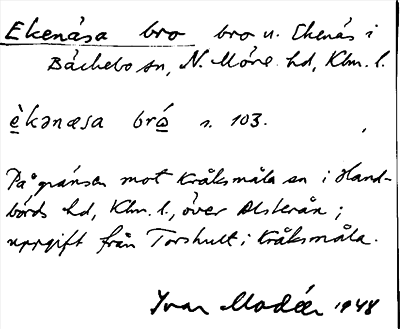 Ekenäsa bro bro u. Ekenäs i
Bäckebo sn, N. Möre hd, Klm. l.
è̱kənæsa brά̱ s. 103.
På gränsen mot Kråksmåla sn i Hand-
börds hd, Klm. l., över Alsterån;
uppgift från Torshult i Kråksmåla.
Ivar Modéer 1948